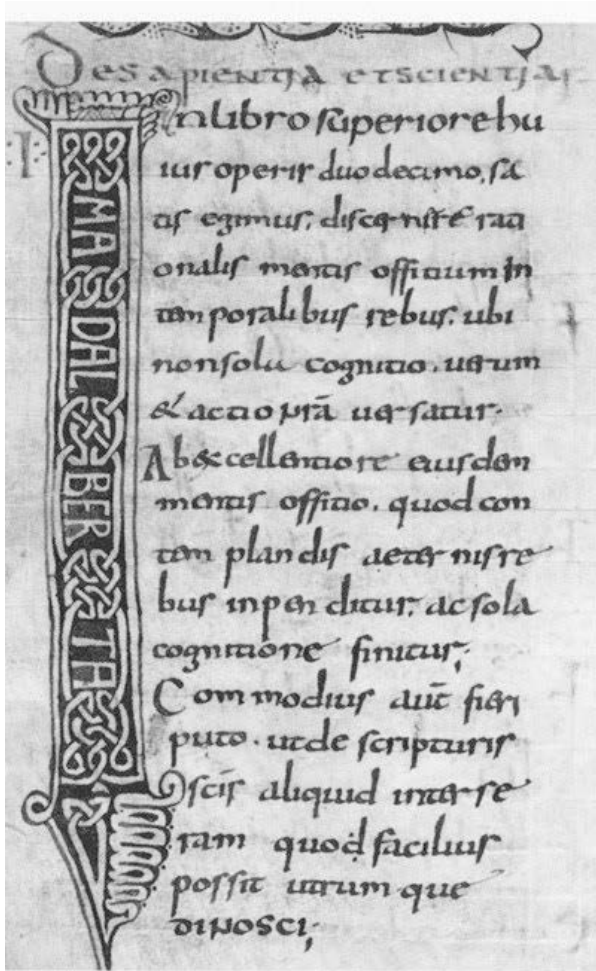 De sapientia et scientia
In libro superiore hu
ius operis duodecimo, sa
tis egimus, discernere rati
onalis mentis officium in
temporalibus rebus, ubi
non solū cognitio, uerum
& actio nrā uersatur.
Ab excellentiore eiusdem
mentis offitio, quod con
templandis aeternis re
bus inpenditur, ac sola
cognitione finitur;
Commodius aūt fieri
puto, ut de scripturis
scīs aliquid inter se
ram quod facilius
possit utrumque
dinosci;
MADALBERTA